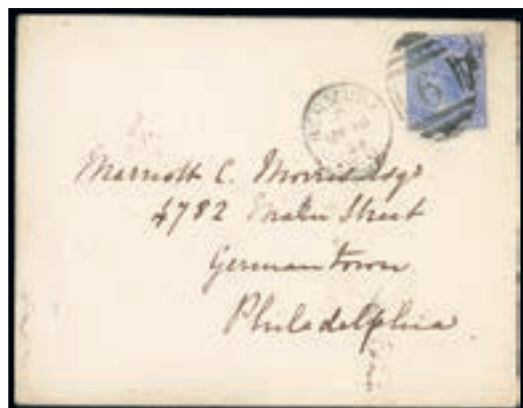 6 W
Marriott C. Morris Esqr
4782 Main Street
Germantown
Philadelphia